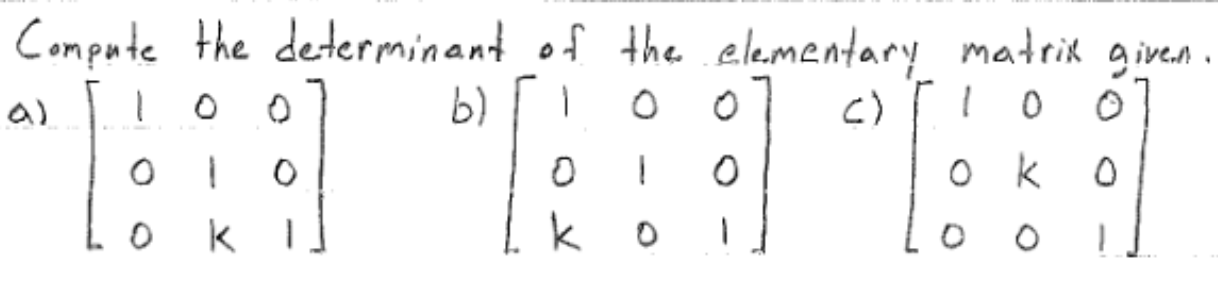 Compute the determinant of the elementary matrix given.
a) [ 1 0 0 b) [ 1 0 0 ] c) [ 1 0 0 ]
0 1 0 0 1 0 0 k 0
0 k 1 ] k 0 1 0 0 1